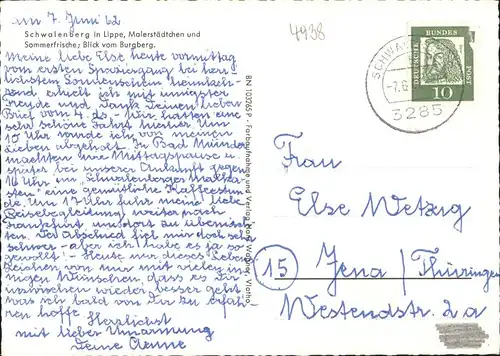 am 7. Juni 62
Schwalenberg in Lippe, Malerstädtchen und
Sommerfrische; Blick vom Burgberg.
Meine liebe Else heute vormittag
vom ersten Spaziergang bei herr-
lichstem Sonnenschein heimkeh-
rend erhielt ich mit innigster
Freude und Dank Deinen lieben
Brief vom 4. ds. Wir hatten eine
sehr schöne Fahrt hierher. Um
10 Uhr wurde ich von meinen
Lieben abgeholt. In Bad Münder
machten wir Mittagspause u.
später bei unserer Ankunft gegen
16 Uhr im "Schwalenberger Malkas-
ten" eine gemütliche Kaffeestun-
de. Um 17 Uhr fuhr meine liebe
Reisebegleitung weiter nach
Frankfurt und dort zu übernach-
ten. Der Abschied fiel mir doch sehr
schwer - aber ich habe es ja so
gewollt! - Heute nur dieses Lebens-
zeichen von mir mit vielen in-
nigen Wünschen dass es Dir
inzwischen wieder besser geht
was ich bald von Dir zu erfah-
ren hoffe. Herzlichst
mit lieber Umarmung
Deine Aenne
BN 103265 P - Farbaufnahme und Verlag
4938
SCHWA
-7.6
3285
DEUTSCHE BUNDES POST
10
Frau
Else Wetzig
15 Jena / Thüringen
Westendstr. 2a